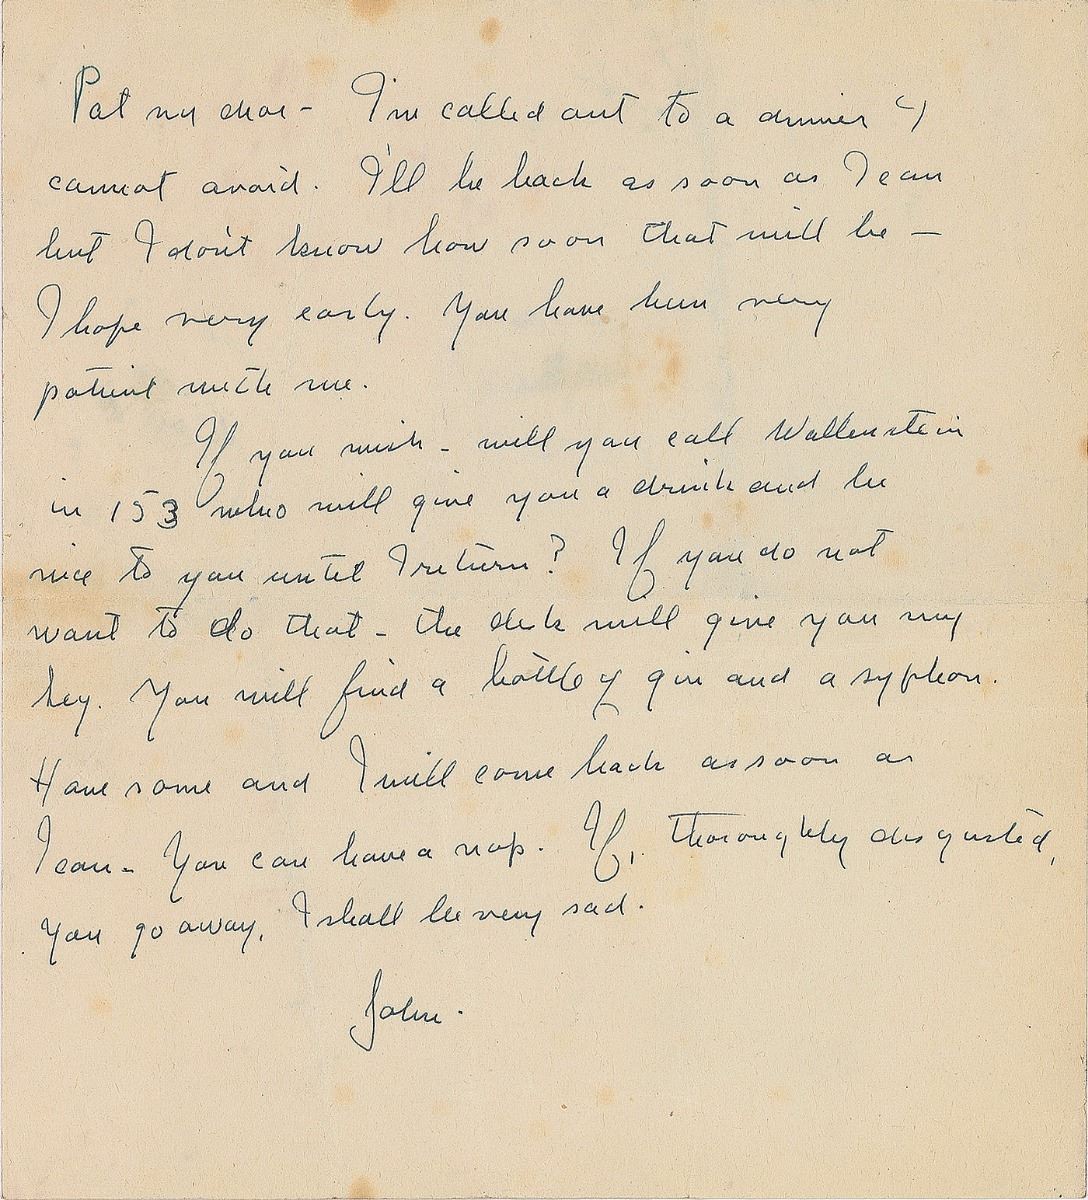 Pat my dear - I'm called out to a dinner I
cannot avoid. I'll be back as soon as I can
but I don't know how soon that will be -
I hope very early. You have been very
patient with me.
If you wish - will you call Wallenstein
in 153 who will give you a drink and be
nice to you until I return? If you do not
want to do that - the desk will give you my
key. You will find a bottle of gin and a syphon.
Have some and I will come back as soon as
I can - You can have a nap. If, thoroughly disgusted,
you go away, I shall be very sad.
John.